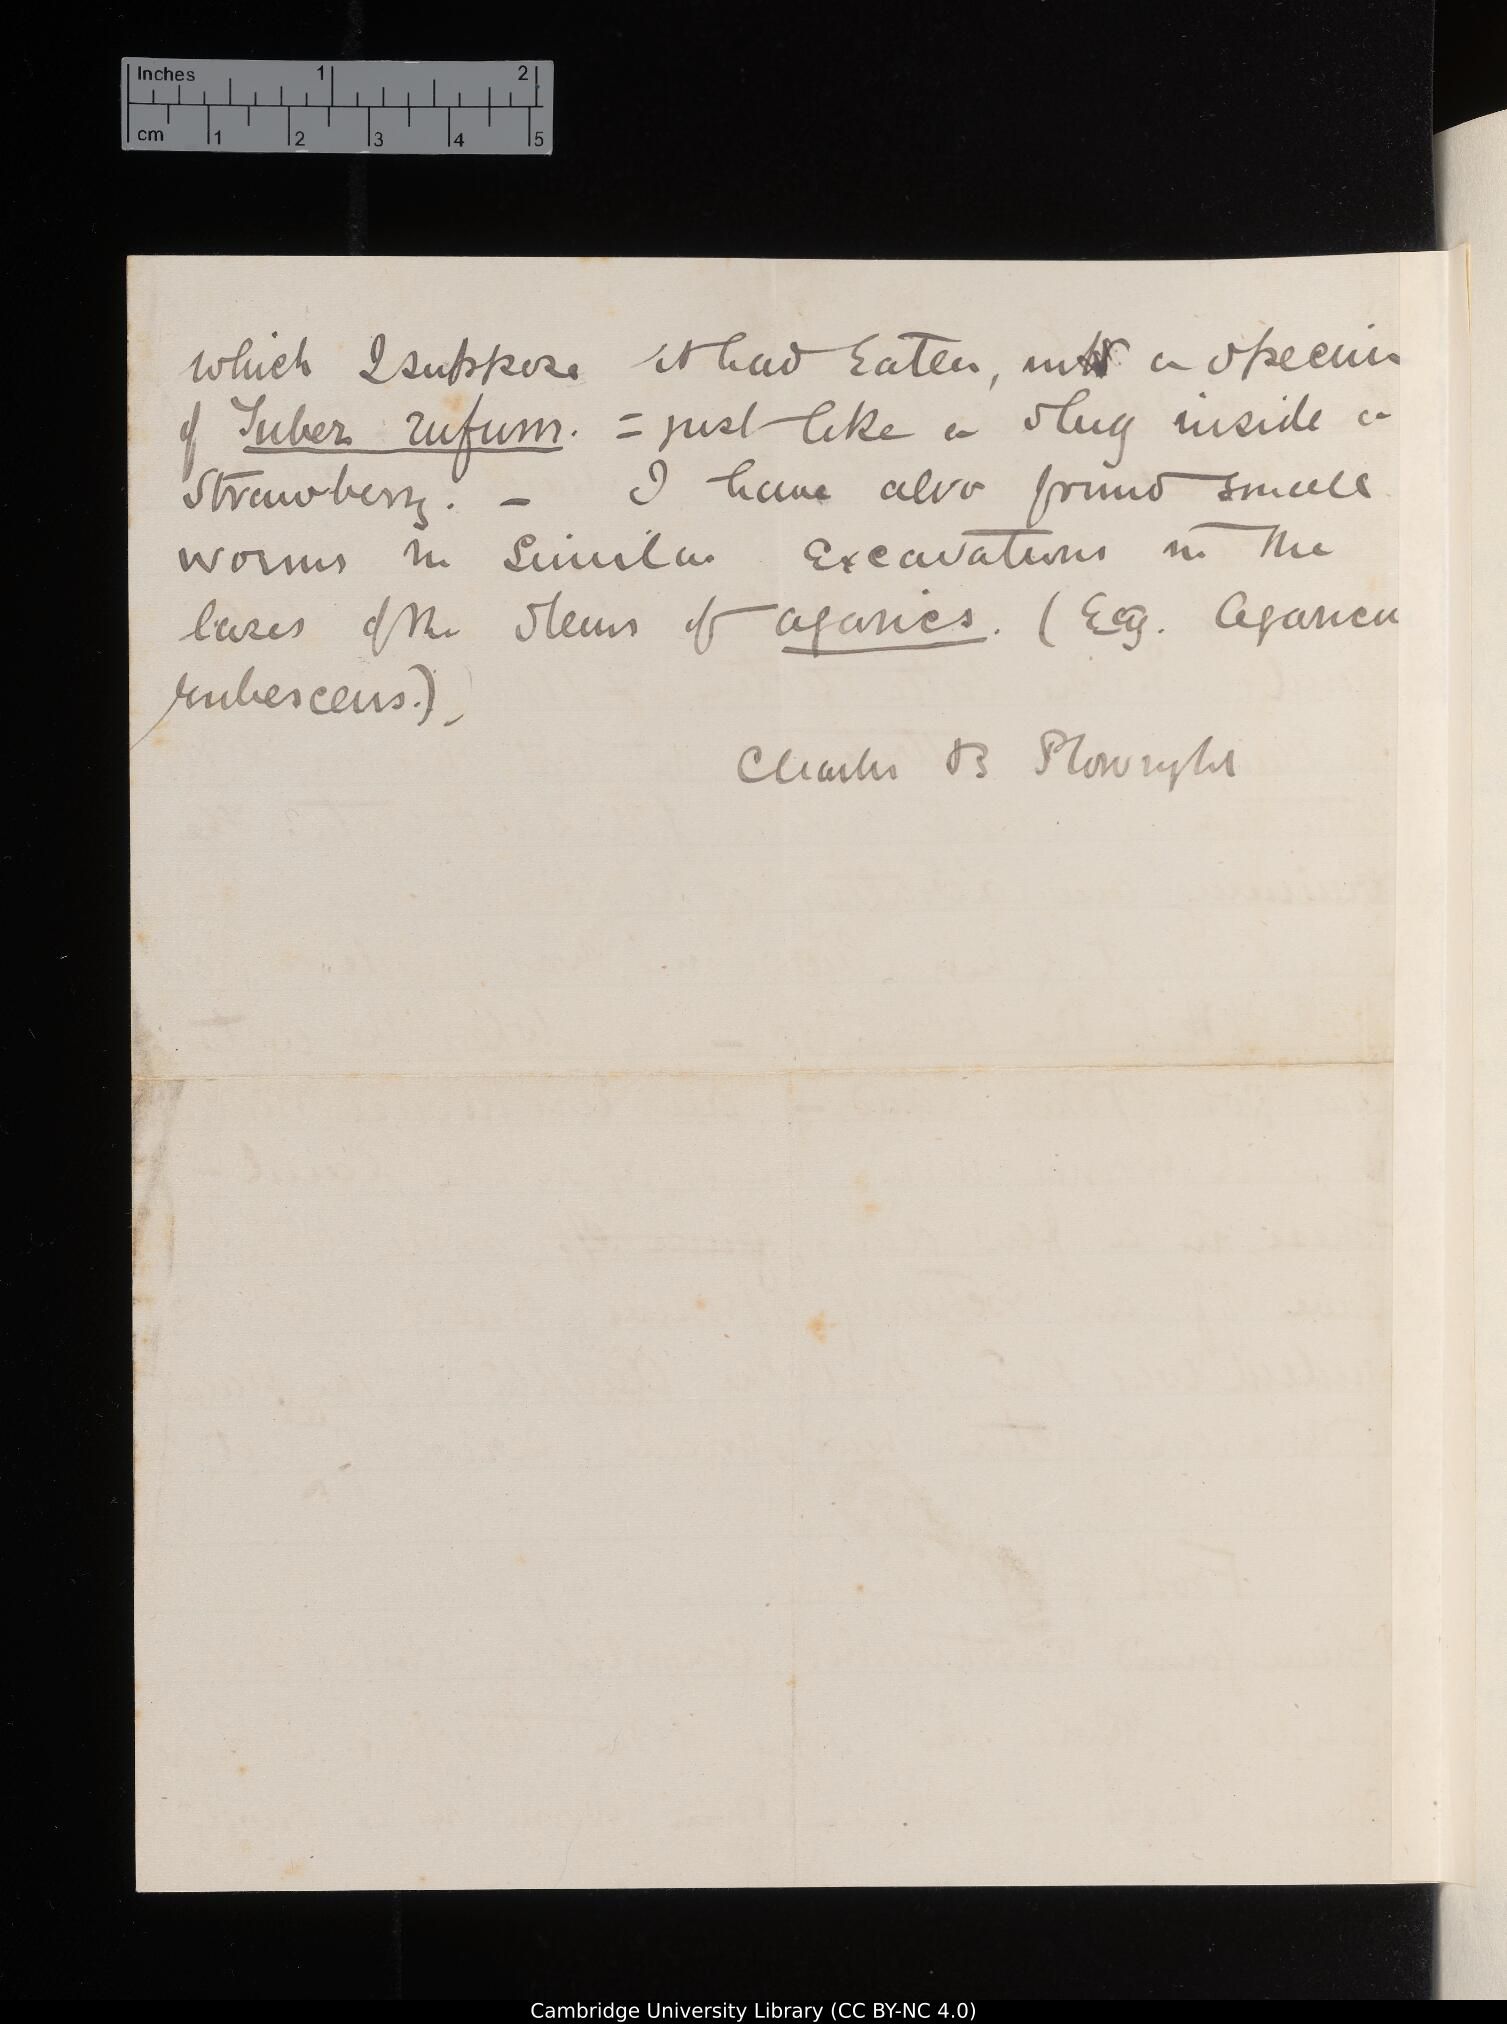 Inches 1 2
cm 1 2 3 4 5
which I suppose it had eaten, in a specim
of Tuber rufum. = just like a slug inside a
Strawberry. - I have also found small
worms in similar excavations in the
bases of the stems of agarics. (Eg. Agaricu
rubescens.)
Charles B Plowright
Cambridge University Library (CC BY-NC 4.0)